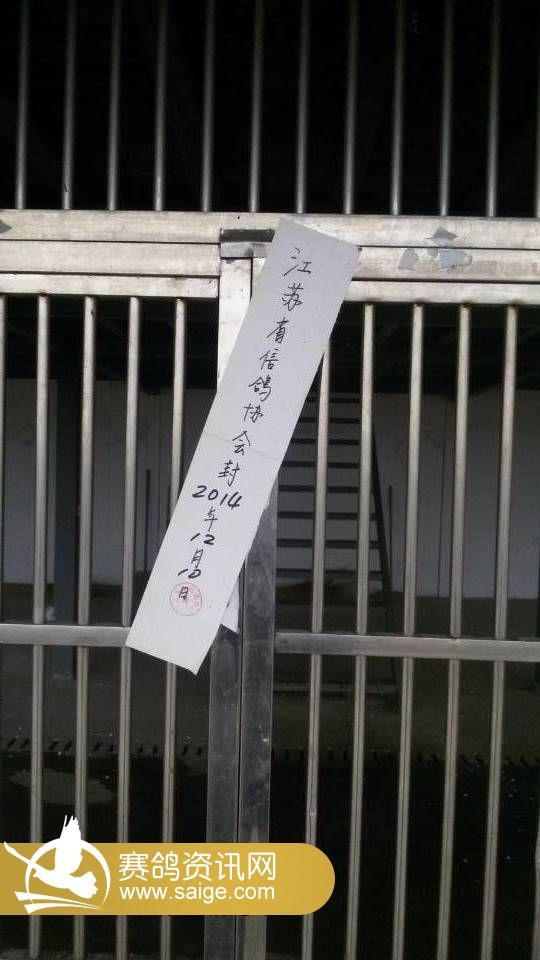 江苏省信鸽协会封
2014年12月10日
赛鸽资讯网
www.saige.com